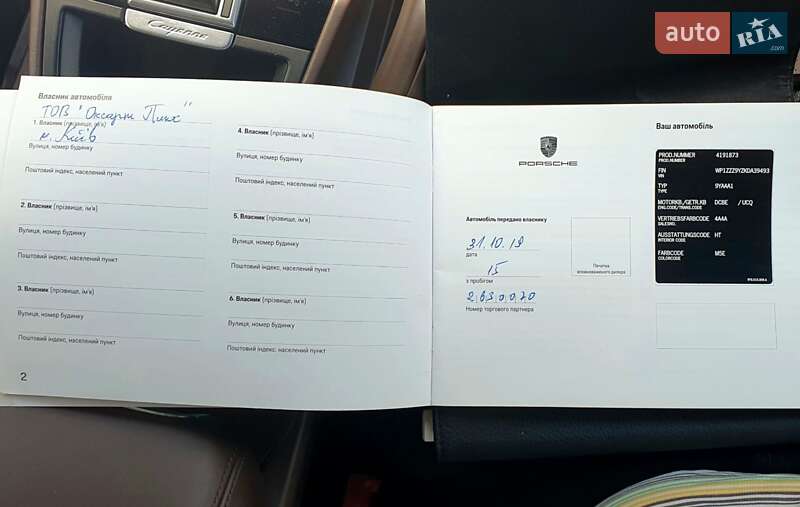 Cayenne
auto RIA.com
Власник автомобіля
ТОВ "
1. Власник (прізвище, ім'я)
м. Київ
Вулиця, номер будинку
Поштовий індекс, населений пункт
2. Власник (прізвище, ім'я)
Вулиця, номер будинку
Поштовий індекс, населений пункт
3. Власник (прізвище, ім'я)
Вулиця, номер будинку
Поштовий індекс, населений пункт
2
4. Власник (прізвище, ім'я)
Вулиця, номер будинку
Поштовий індекс, населений пункт
5. Власник (прізвище, ім'я)
Вулиця, номер будинку
Поштовий індекс, населений пункт
6. Власник (прізвище, ім'я)
Вулиця, номер будинку
Поштовий індекс, населений пункт
PORSCHE
Автомобіль передано власнику
31.10.19
дата
15
з пробігом
2630070
Номер торгового партнера
Печатка
вповноваженого дилера
Ваш автомобіль
PROD.NUMMER 4191873
PROD.NUMBER
FIN WP1ZZZ9YZKDA39493
VIN
TYP 9YAAA1
TYPE
MOTORKB./GETR.KB DCBE / UCQ
ENG.CODE/TRANS.CODE
VERTRIEBSFARBCODE 4A4A
SALESNO.
AUSSTATTUNGSCODE HT
INTERIOR CODE
FARBCODE M5E
COLORCODE